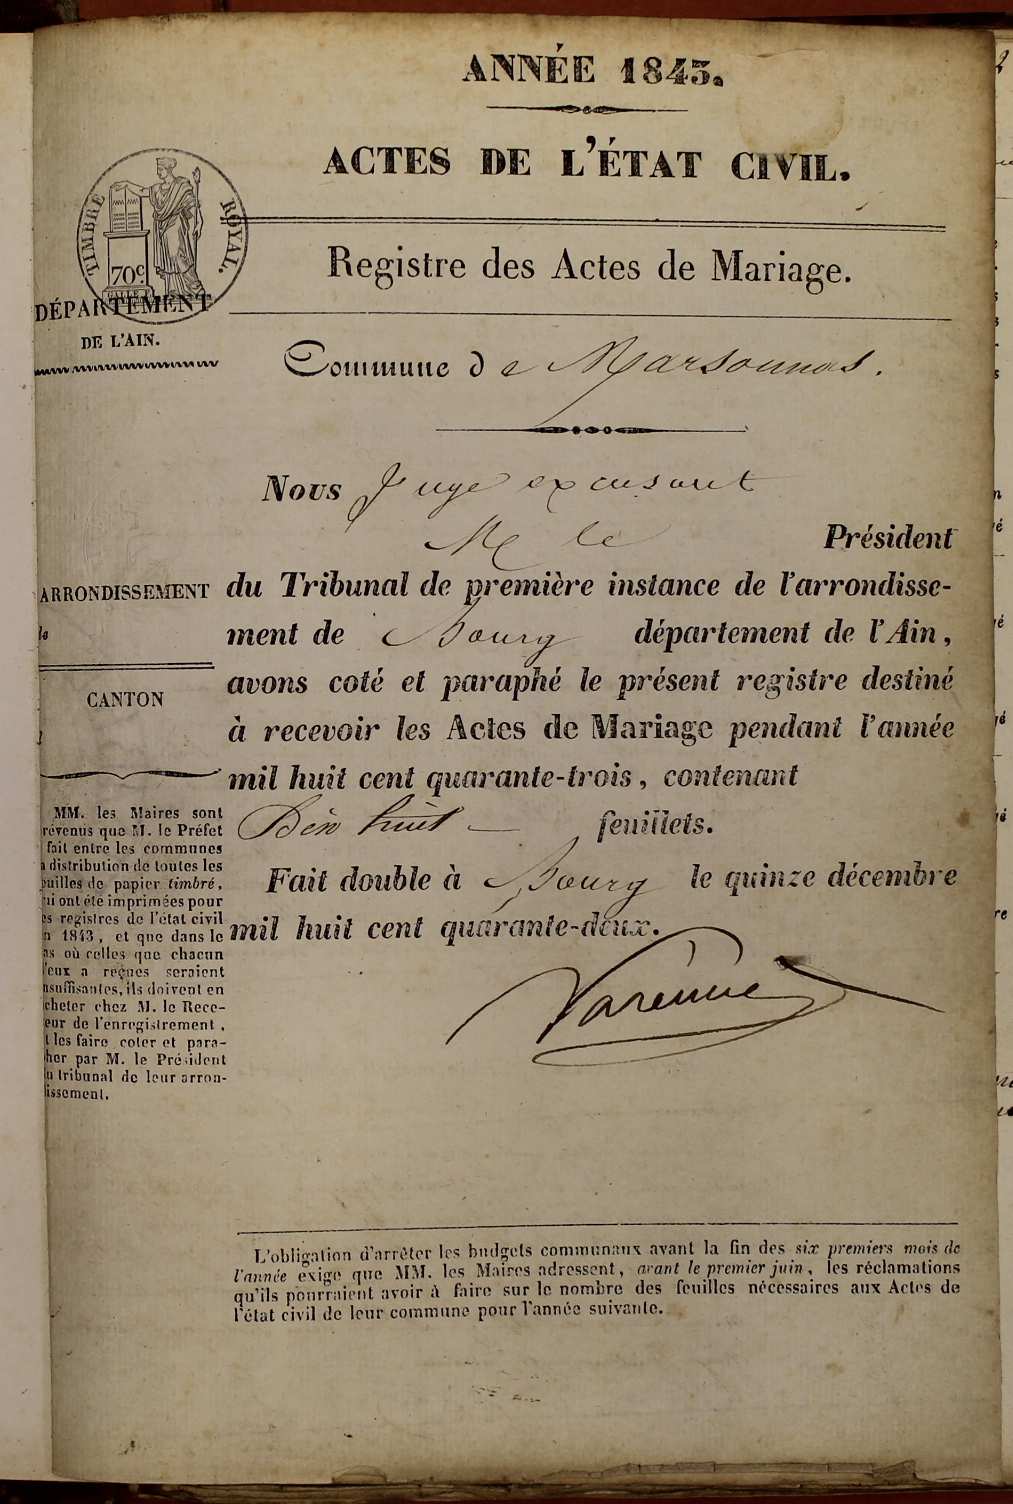 ANNÉE 1843.
ACTES DE L'ÉTAT CIVIL.
TIMBRE ROYAL.
70c
DÉPARTEMENT
DE L'AIN.
Registre des Actes de Mariage.
Commune de Marsonnas.
Nous Juge excusant
M le Président
ARRONDISSEMENT
de
CANTON
du Tribunal de première instance de l'arrondisse-
ment de Bourg département de l'Ain,
avons coté et paraphé le présent registre destiné
à recevoir les Actes de Mariage pendant l'année
mil huit cent quarante-trois, contenant
Dix huit — feuillets.
Fait double à Bourg le quinze décembre
mil huit cent quarante-deux.
MM. les Maires sont
révenus que M. le Préfet
fait entre les communes
a distribution de toutes les
euilles de papier timbré,
ui ont été imprimées pour
es registres de l'état civil
n 1843, et que dans le
as où celles que chacun
'eux a reçues seraient
nsuffisantes, ils doivent en
cheter chez M. le Rece-
eur de l'enregistrement,
t les faire coter et para-
her par M. le Président
u tribunal de leur arron-
issement.
L'obligation d'arrêter les budgets communaux avant la fin des six premiers mois de
l'année exige que MM. les Maires adressent, avant le premier juin, les réclamations
qu'ils pourraient avoir à faire sur le nombre des feuilles nécessaires aux Actes de
l'état civil de leur commune pour l'année suivante.